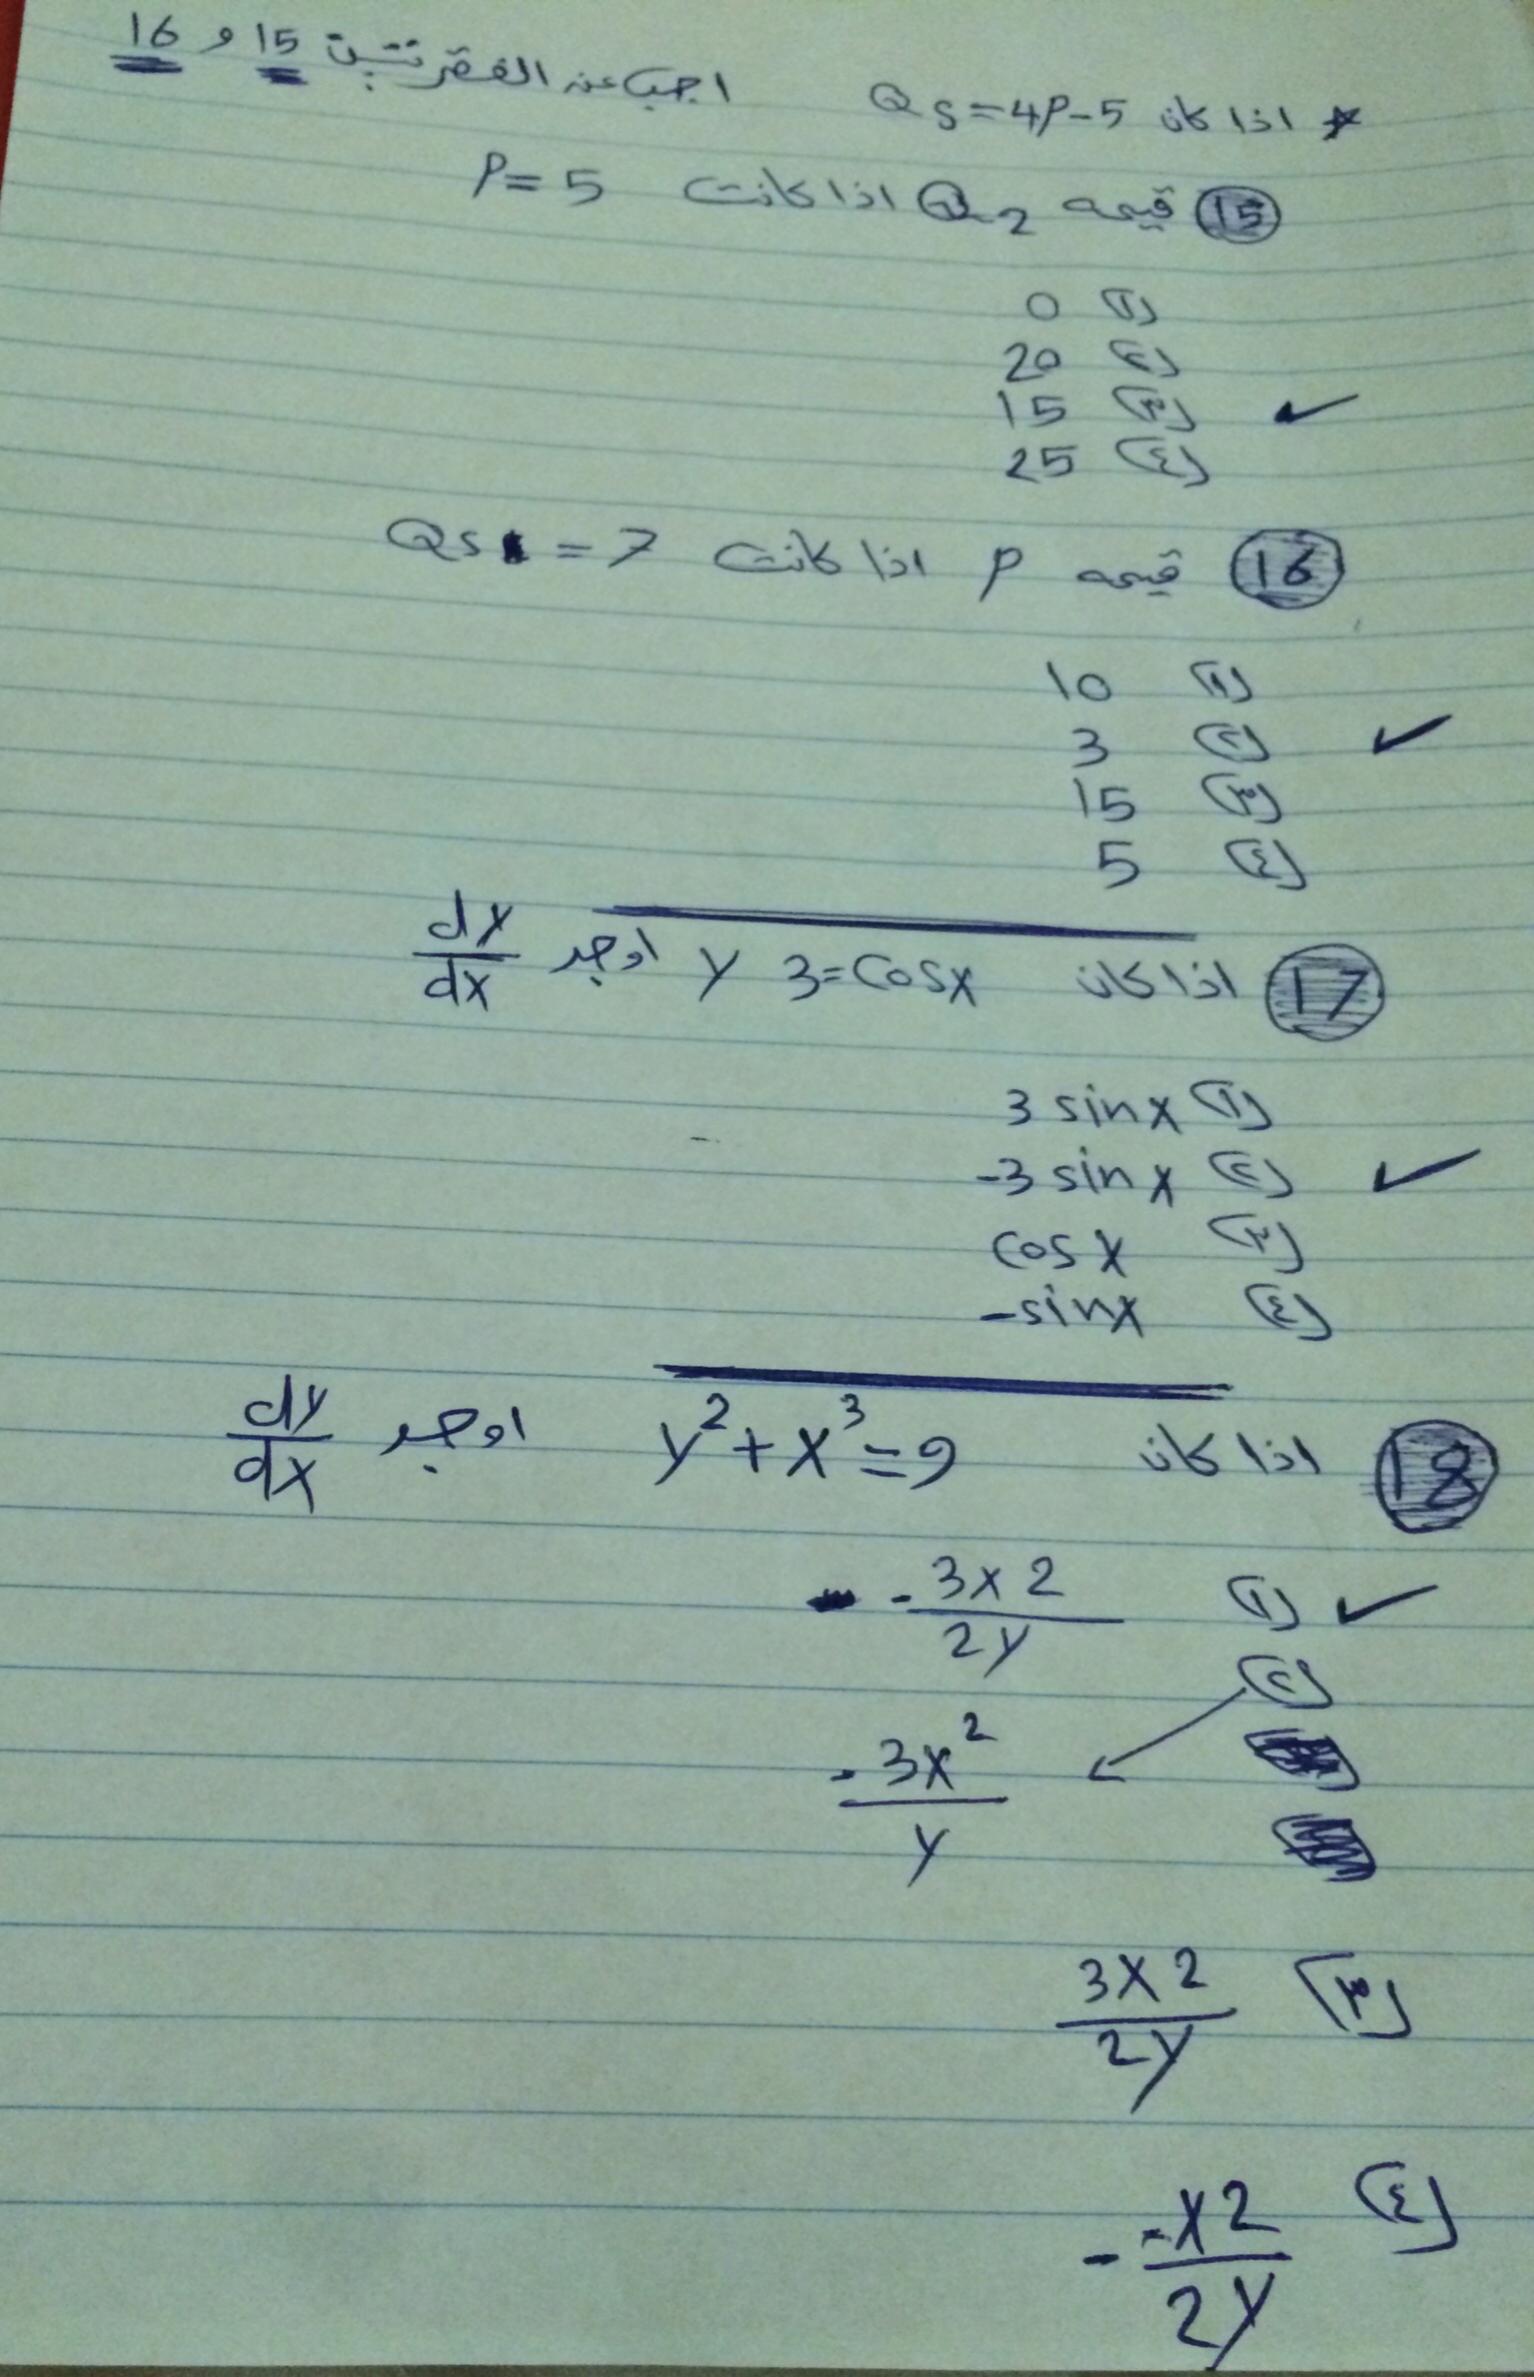 * اذا كان Qs=4P-5 اجب عن الفقرتين 15 و 16
15 قيمه Q2 اذا كانت P=5
(١ 0
(٢ 20
(٣ 15 ✓
(٤ 25
16 قيمه P اذا كانت Qs = 7
(١ 10
(٢ 3 ✓
(٣ 15
(٤ 5
17 اذا كان y 3=cosx اوجد dy/dx
(١ 3 sinx
(٢ -3 sinx ✓
(٣ cosx
(٤ -sinx
18 اذا كان y²+x³=9 اوجد dy/dx
(١ -3x2/2y ✓
(٢ -3x²/y
(٣ 3x2/2y
(٤ - -x2/2y